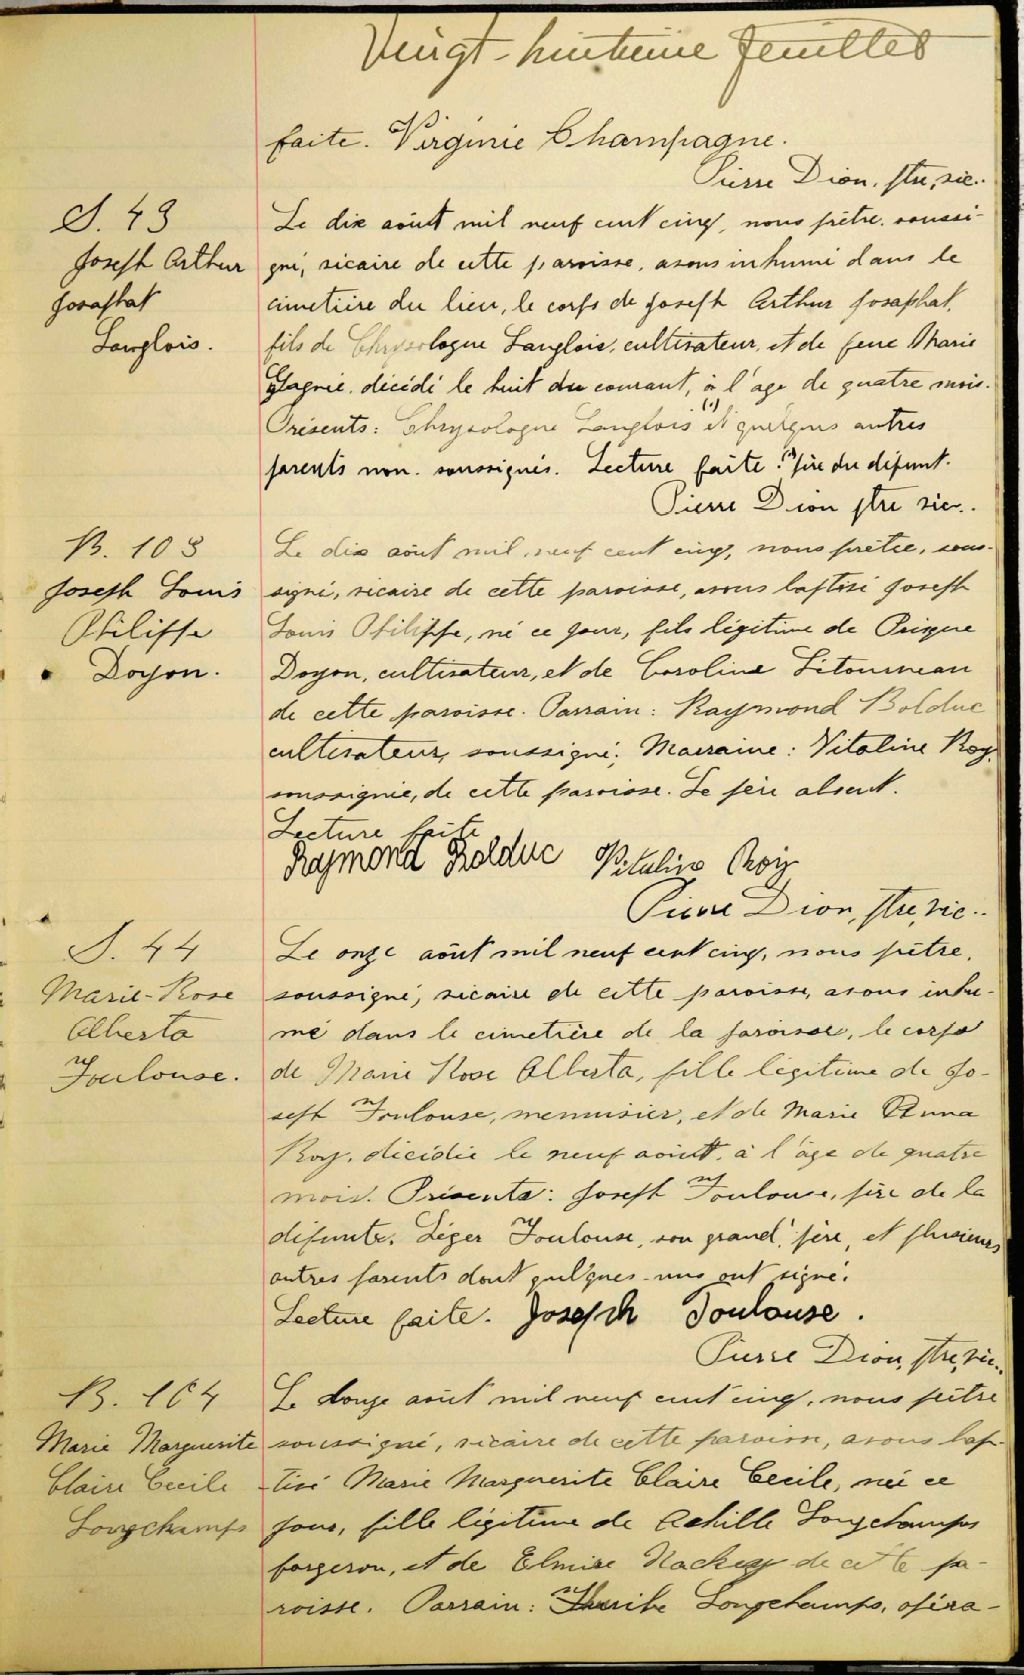 Vingt-huitième feuillet
faite. Virginie Champagne.
Pierre Dion, ptre, vic..
S. 43
Joseph Arthur
Josaphat
Langlois.
Le dix août mil neuf cent cinq, nous prêtre soussi-
gné, vicaire de cette paroisse, avons inhumé dans le
cimetière du lieu, le corps de Joseph Arthur Josaphat,
fils de Chrysologue Langlois, cultivateur, et de feue Marie
Gagné, décédé le huit du courant, à l'age de quatre mois.
Présents: Chrysologue Langlois (1) et quelques autres
parents non soussignés. Lecture faite. (1) père du défunt.
Pierre Dion ptre vic..
B. 103
Joseph Louis
Philippe
Doyon.
Le dix août mil neuf cent cinq, nous prêtre, sous-
signé, vicaire de cette paroisse, avons baptisé Joseph
Louis Philippe, né ce jour, fils légitime de Prisque
Doyon, cultivateur, et de Caroline Létourneau
de cette paroisse. Parrain: Raymond Bolduc
cultivateur, soussigné; Marraine: Vitaline Roy,
soussignée, de cette paroisse. Le père absent.
Lecture faite
Raymond Bolduc Vitaline Roy
Pierre Dion, ptre, vic..
S. 44
Marie-Rose
Alberta
Toulouse.
Le onze août mil neuf cent cinq, nous prêtre,
soussigné, vicaire de cette paroisse, avons inhu-
mé dans le cimetière de la paroisse, le corps
de Marie Rose Alberta, fille légitime de Jo-
seph Toulouse, menuisier, et de Marie Anna
Roy, décédée le neuf août, à l'âge de quatre
mois. Présents: Joseph Toulouse, père de la
défunte, Léger Toulouse, son grand'père, et plusieurs
autres parents dont quelques-uns ont signé.
Lecture faite. Joseph Toulouse.
Pierre Dion, ptre, vic..
B. 104
Marie Marguerite
Claire Cecile
Longchamps
Le douze août mil neuf cent cinq, nous prêtre
soussigné, vicaire de cette paroisse, avons bap-
tisé Marie Marguerite Claire Cecile, née ce
jour, fille légitime de Achille Longchamps
forgeron, et de Elmire Mackey de cette pa-
roisse. Parrain: Longchamps, opéra-